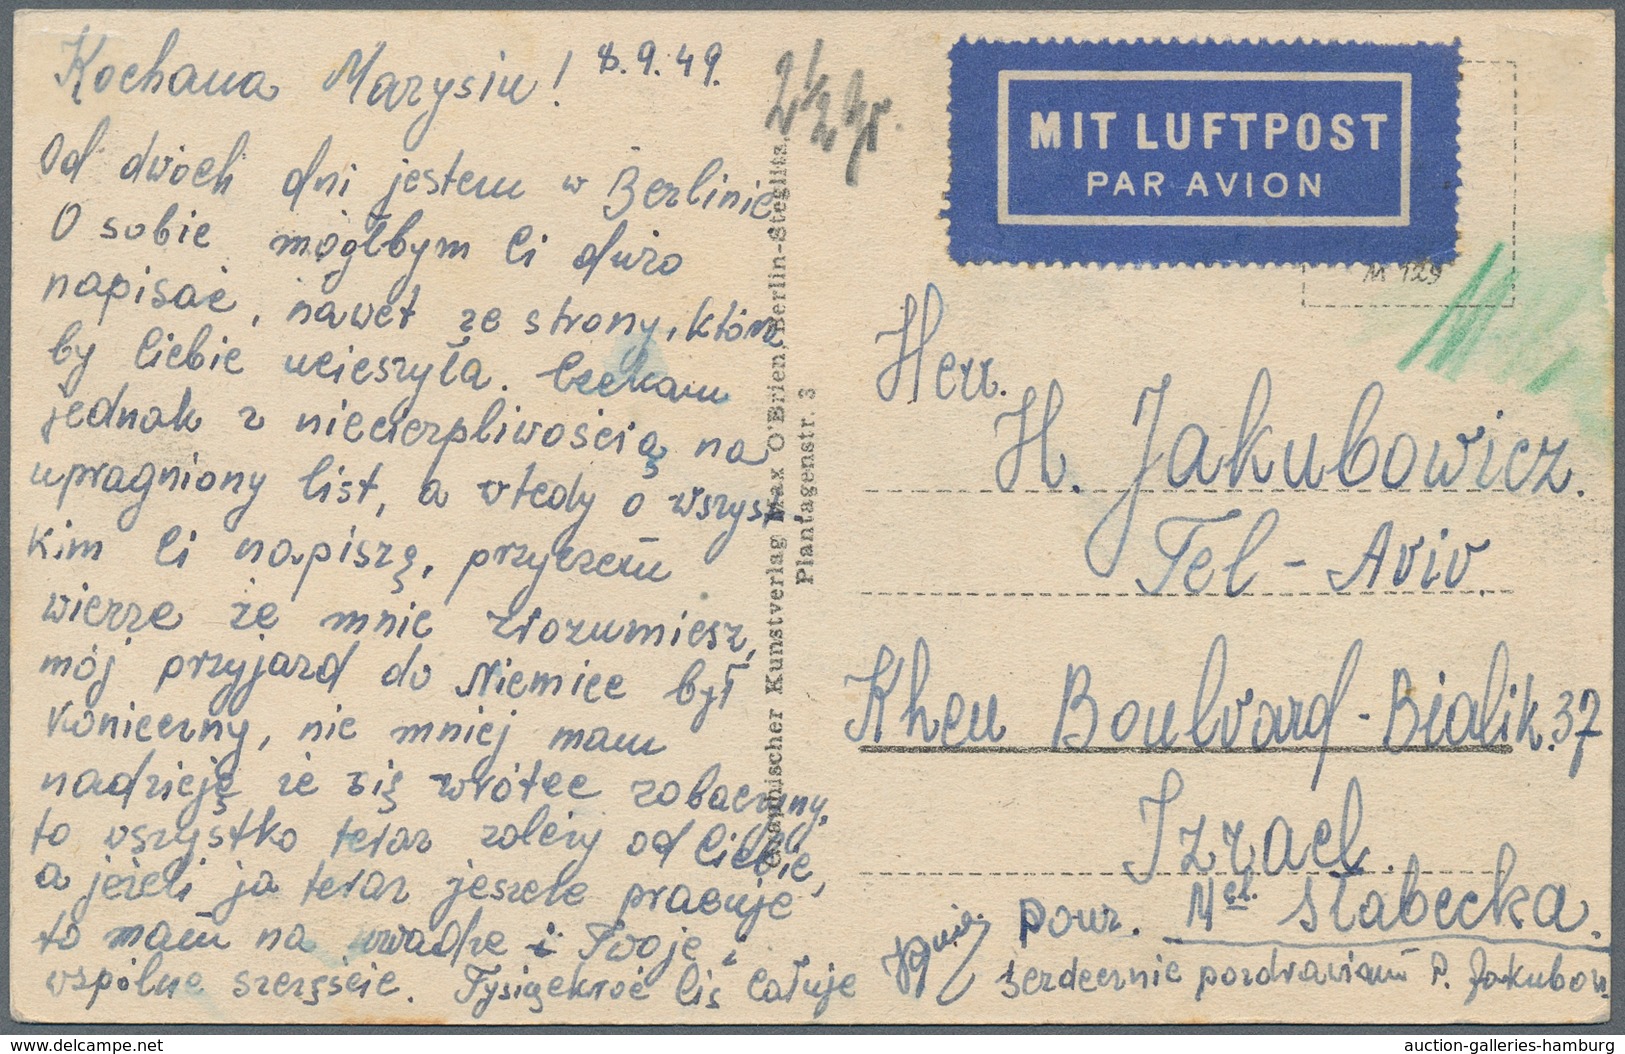 Kochana Marysiu! 8.9.49.
Od dwóch dni jestem w Berlinie
O sobie mógłbym Ci dużo
napisać, nawet ze strony, która
by Ciebie ucieszyła. Czekam
jednak z niecierpliwością na
upragniony list, a wtedy o wszyst-
kim Ci napiszę, przyczem
wierzę że mnie zrozumiesz,
mój przyjazd do Niemiec był
konieczny, nie mniej mam
nadzieję że się wrótce zobaczymy,
to wszystko teraz zależy od Ciebie,
a jeżeli ja teraz jeszcze pracuje
to mam na uwadze i Twoje i
wspólne szczęście. Tysiąckroć Cię całuje
2½ gr.
Graphischer Kunstverlag Max O'Brien, Berlin-Steglitz,
Plantagenstr. 3
MIT LUFTPOST
PAR AVION
M 129
Herr.
H. Jakubowicz.
Tel-Aviv.
Kheu Boulvard-Bialik.37
Izrael.
pour. Mel. Słabecka.
Serdecznie pozdrawiam P. Jakubow.
auction-galleries-hamburg
www.delcampe.net